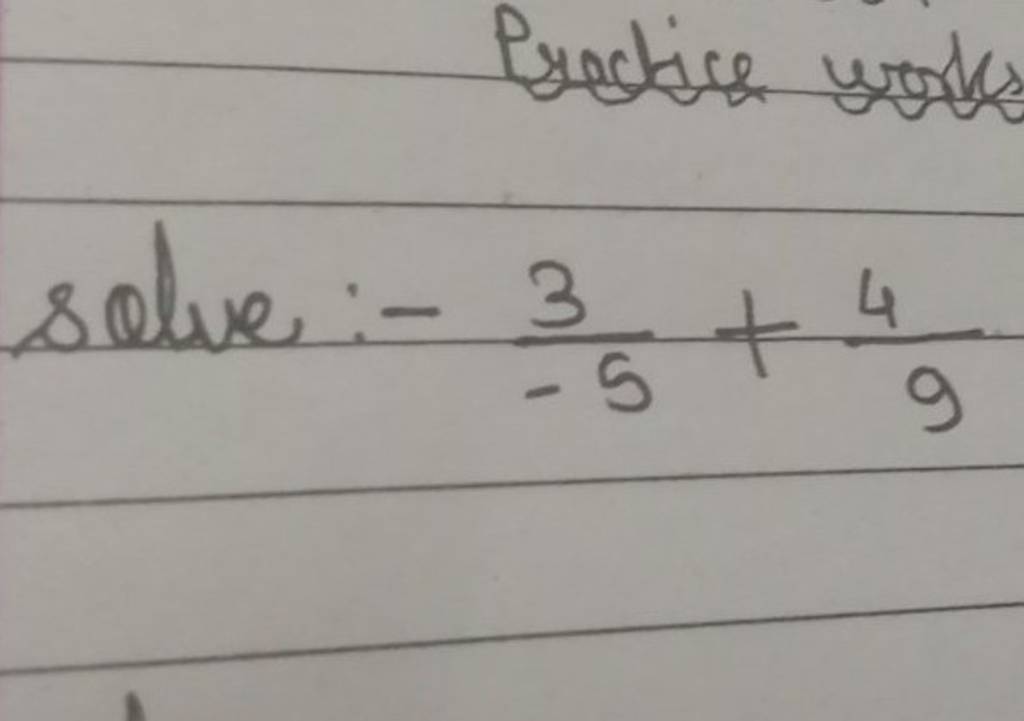 Practice works
solve :- 3/-5 + 4/9